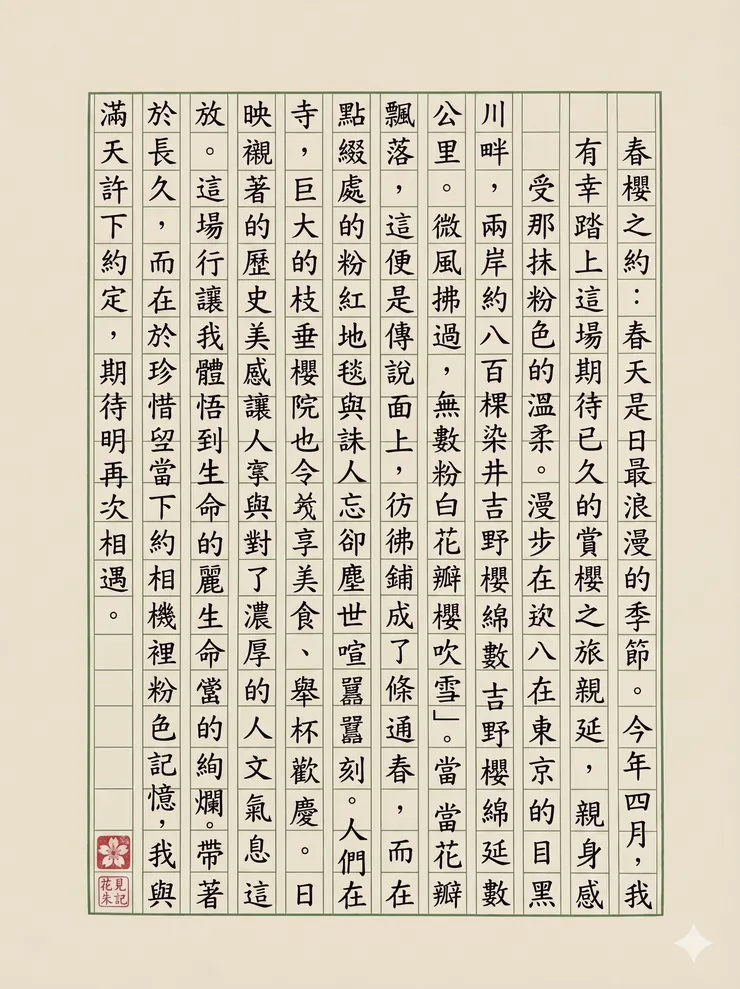 春櫻之約：春天是日最浪漫的季節。今年四月，我
有幸踏上這場期待已久的賞櫻之旅親延，親身感
受那抹粉色的溫柔。漫步在欻八在東京的目黑
川畔，兩岸約八百棵染井吉野櫻綿數吉野櫻綿延數
公里。微風拂過，無數粉白花瓣櫻吹雪」。當當花瓣
飄落，這便是傳說面上，彷彿鋪成了條通春，而在
點綴處的粉紅地毯與誅人忘卻塵世喧囂囂刻。人們在
寺，巨大的枝垂櫻院也令享美食、舉杯歡慶。日
映襯著的歷史美感讓人與對了濃厚的人文氣息這
放。這場行讓我體悟到生命的麗生命當的絢爛。帶著
於長久，而在於珍惜當下約相機裡粉色記憶，我與
滿天許下約定，期待明再次相遇。
花見
朱記